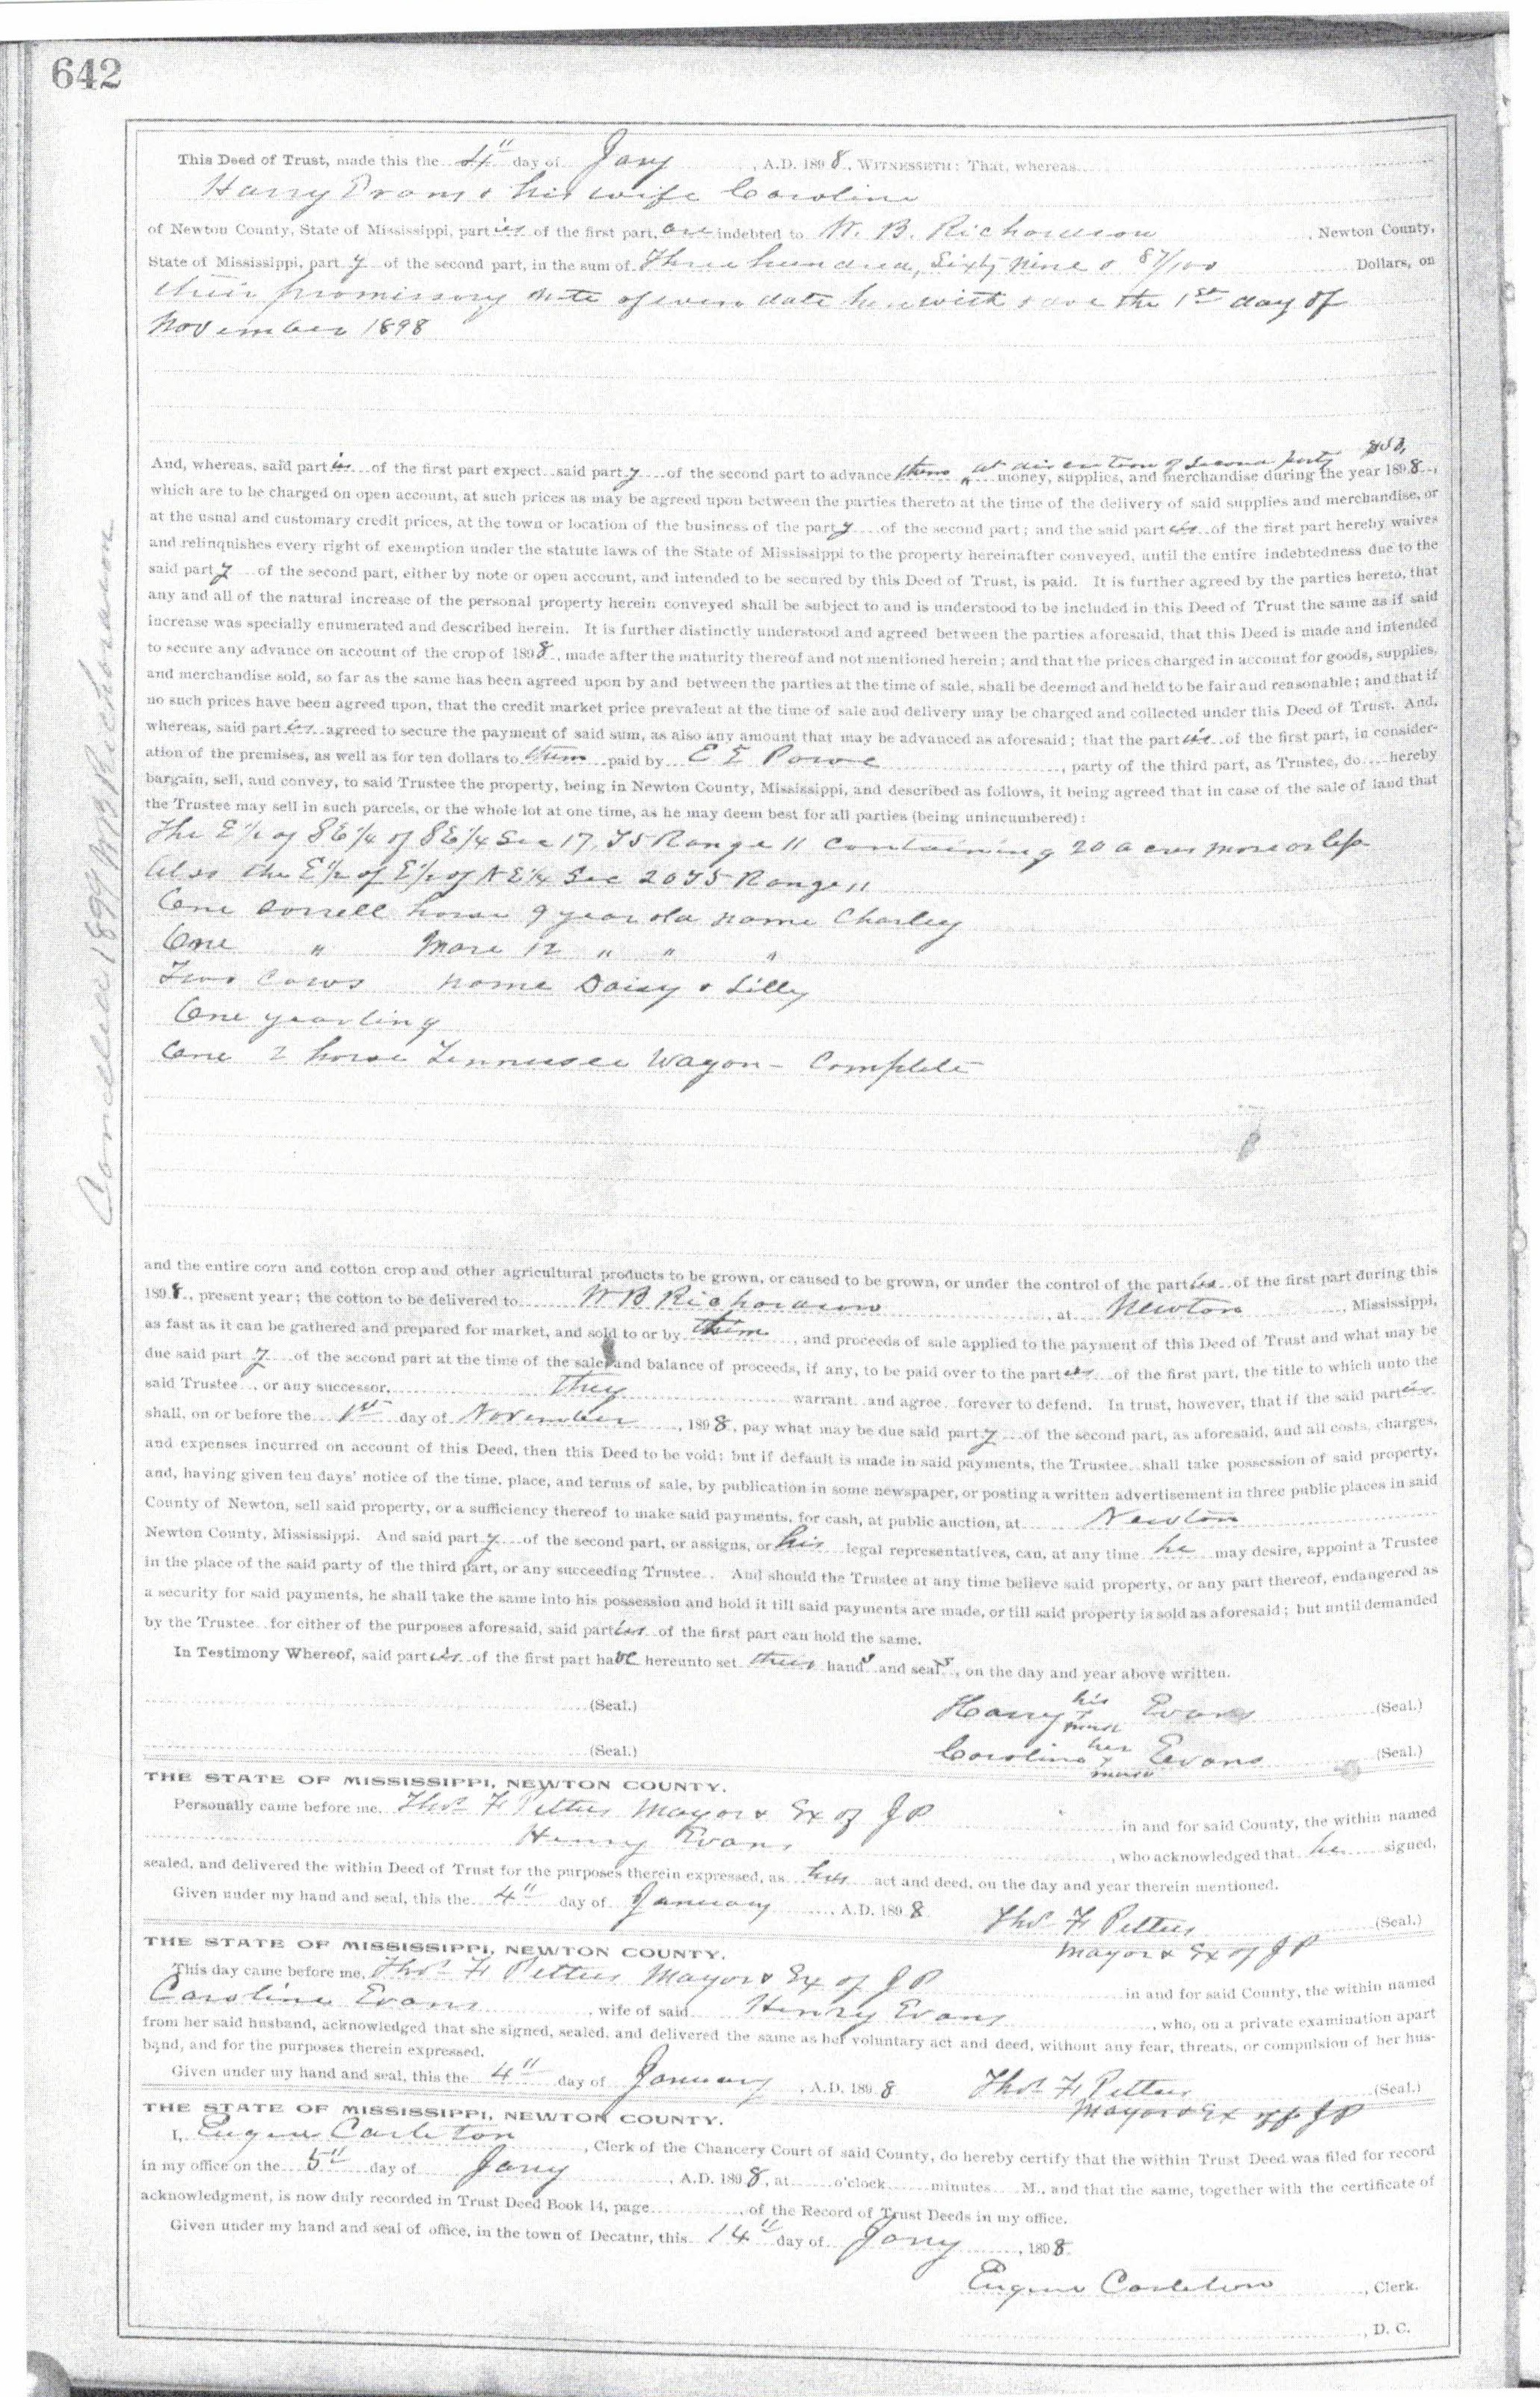 642
This Deed of Trust, made this the 4" day of Jany, A.D. 1898, WITNESSETH: That, whereas
Harry Evans & his wife Caroline
of Newton County, State of Mississippi, parties of the first part, are indebted to W. B. Richardson, Newton County,
State of Mississippi, party of the second part, in the sum of Three hundred, Sixty Nine & 87/100 Dollars, on
their promissory note of even date herewith & due the 1st day of
November 1898
And, whereas, said parties of the first part expect said party of the second part to advance them at discretion of Second party money, supplies, and merchandise during the year 1898,
which are to be charged on open account, at such prices as may be agreed upon between the parties thereto at the time of the delivery of said supplies and merchandise, or
at the usual and customary credit prices, at the town or location of the business of the party of the second part; and the said parties of the first part hereby waives
and relinquishes every right of exemption under the statute laws of the State of Mississippi to the property hereinafter conveyed, until the entire indebtedness due to the
said party of the second part, either by note or open account, and intended to be secured by this Deed of Trust, is paid. It is further agreed by the parties hereto, that
any and all of the natural increase of the personal property herein conveyed shall be subject to and is understood to be included in this Deed of Trust the same as if said
increase was specially enumerated and described herein. It is further distinctly understood and agreed between the parties aforesaid, that this Deed is made and intended
to secure any advance on account of the crop of 1898, made after the maturity thereof and not mentioned herein; and that the prices charged in account for goods, supplies,
and merchandise sold, so far as the same has been agreed upon by and between the parties at the time of sale, shall be deemed and held to be fair and reasonable; and that if
no such prices have been agreed upon, that the credit market price prevalent at the time of sale and delivery may be charged and collected under this Deed of Trust. And,
whereas, said parties agreed to secure the payment of said sum, as also any amount that may be advanced as aforesaid; that the parties of the first part, in consider-
ation of the premises, as well as for ten dollars to them paid by E E Powe, party of the third part, as Trustee, do hereby
bargain, sell, and convey, to said Trustee the property, being in Newton County, Mississippi, and described as follows, it being agreed that in case of the sale of land that
the Trustee may sell in such parcels, or the whole lot at one time, as he may deem best for all parties (being unincumbered):
The E 1/2 of SE 1/4 of SE 1/4 Sec 17, T5 Range 11 containing 20 acres more or less
Also the E 1/2 of E 1/2 of NE 1/4 Sec 20 T5 Range 11
One sorrell horse 9 year old name Charley
One " Mare 12 " " "
Two cows name Daisy & Lilly
One yearling
One 2 horse Tennessee Wagon - Complete
Cancelled 1899 W B Richardson
and the entire corn and cotton crop and other agricultural products to be grown, or caused to be grown, or under the control of the parties of the first part during this
1898, present year; the cotton to be delivered to W B Richardson, at Newton, Mississippi,
as fast as it can be gathered and prepared for market, and sold to or by them, and proceeds of sale applied to the payment of this Deed of Trust and what may be
due said party of the second part at the time of the sale and balance of proceeds, if any, to be paid over to the parties of the first part, the title to which unto the
said Trustee, or any successor, They warrant and agree forever to defend. In trust, however, that if the said parties
shall, on or before the 1st day of November, 1898, pay what may be due said party of the second part, as aforesaid, and all costs, charges,
and expenses incurred on account of this Deed, then this Deed to be void; but if default is made in said payments, the Trustee shall take possession of said property,
and, having given ten days' notice of the time, place, and terms of sale, by publication in some newspaper, or posting a written advertisement in three public places in said
County of Newton, sell said property, or a sufficiency thereof to make said payments, for cash, at public auction, at Newton
Newton County, Mississippi. And said party of the second part, or assigns, or his legal representatives, can, at any time he may desire, appoint a Trustee
in the place of the said party of the third part, or any succeeding Trustee. And should the Trustee at any time believe said property, or any part thereof, endangered as
a security for said payments, he shall take the same into his possession and hold it till said payments are made, or till said property is sold as aforesaid; but until demanded
by the Trustee for either of the purposes aforesaid, said parties of the first part can hold the same.
In Testimony Whereof, said parties of the first part have hereunto set their hands and seals, on the day and year above written.
(Seal.) Harry his x mark Evans (Seal.)
(Seal.) Caroline her x mark Evans (Seal.)
THE STATE OF MISSISSIPPI, NEWTON COUNTY.
Personally came before me, Thos F Pettus Mayor & Ex of J P in and for said County, the within named
Henry Evans, who acknowledged that he signed,
sealed, and delivered the within Deed of Trust for the purposes therein expressed, as his act and deed, on the day and year therein mentioned.
Given under my hand and seal, this the 4" day of January, A.D. 1898 Thos F Pettus (Seal.)
Mayor & Ex of J P
THE STATE OF MISSISSIPPI, NEWTON COUNTY.
This day came before me, Thos F Pettus Mayor & Ex of J P in and for said County, the within named
Caroline Evans, wife of said Henry Evans, who, on a private examination apart
from her said husband, acknowledged that she signed, sealed, and delivered the same as her voluntary act and deed, without any fear, threats, or compulsion of her hus-
band, and for the purposes therein expressed.
Given under my hand and seal, this the 4" day of January, A.D. 1898 Thos F Pettus (Seal.)
Mayor & Ex off J P
THE STATE OF MISSISSIPPI, NEWTON COUNTY.
I, Eugene Carleton, Clerk of the Chancery Court of said County, do hereby certify that the within Trust Deed was filed for record
in my office on the 5" day of Jany, A.D. 1898, at o'clock minutes M., and that the same, together with the certificate of
acknowledgment, is now duly recorded in Trust Deed Book 14, page, of the Record of Trust Deeds in my office.
Given under my hand and seal of office, in the town of Decatur, this 14" day of Jany, 1898
Eugene Carleton, Clerk.
, D. C.